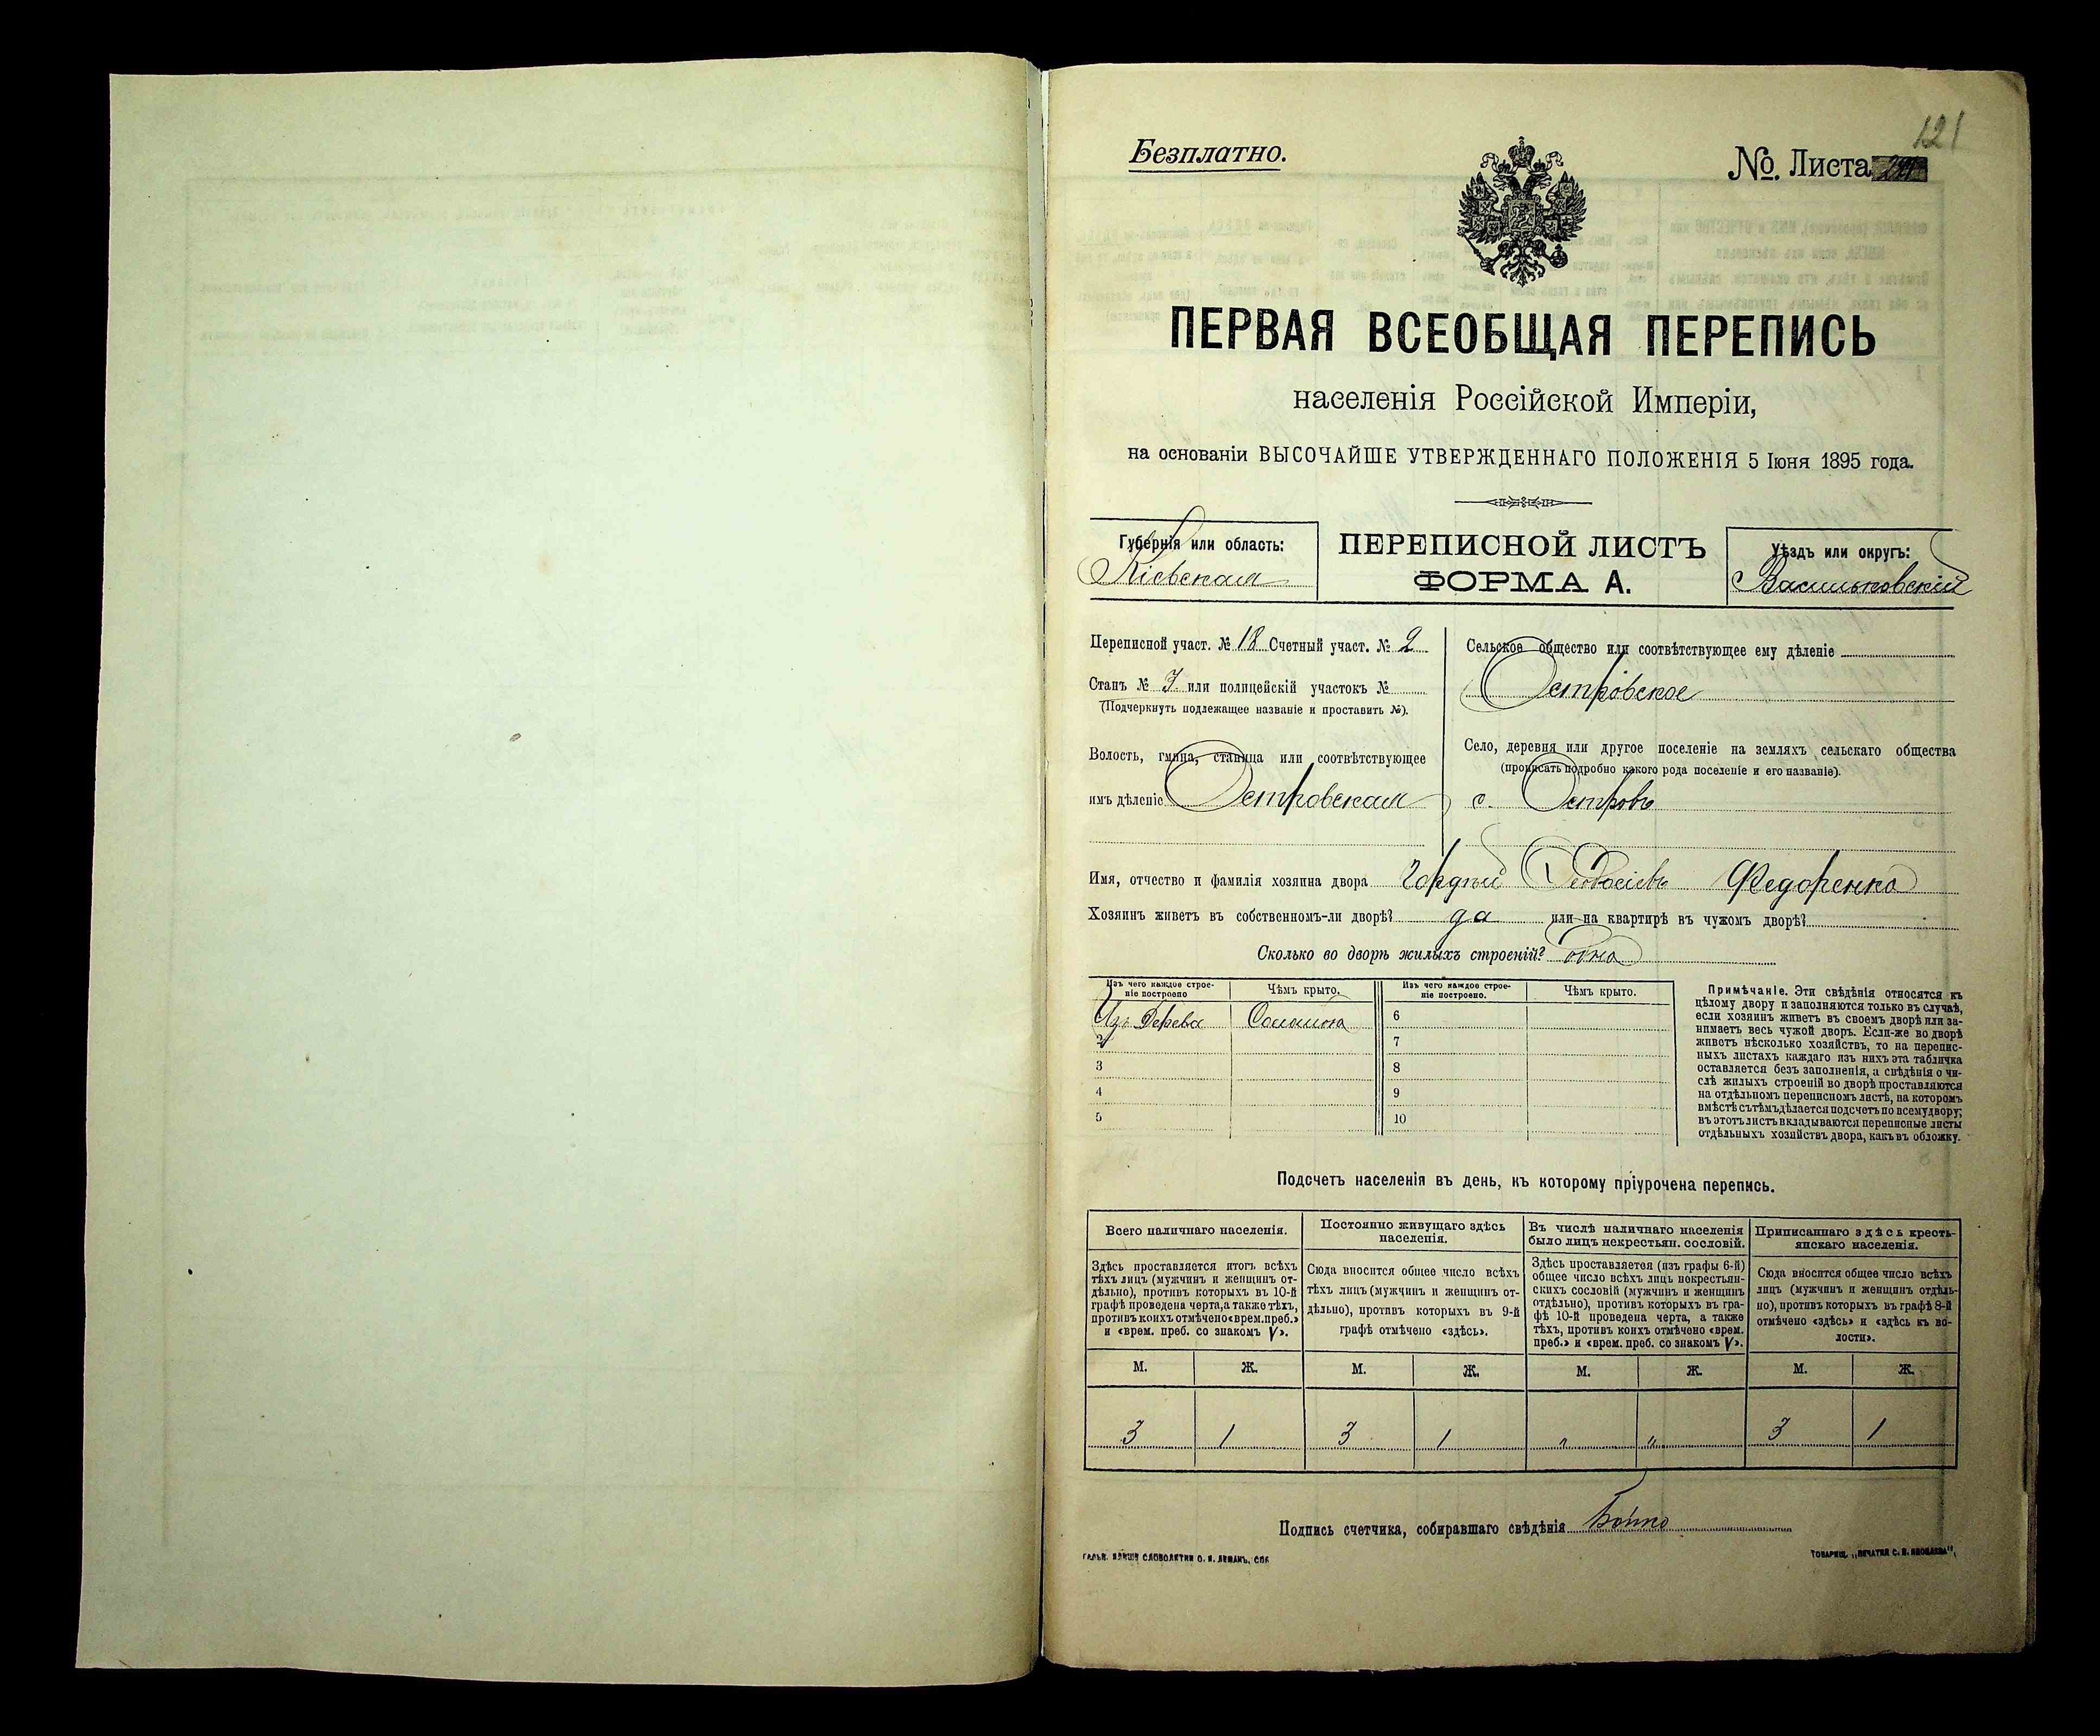 121
Безплатно.
№. Листа
ПЕРВАЯ ВСЕОБЩАЯ ПЕРЕПИСЬ
населенія Россійской Имперіи,
на основаніи ВЫСОЧАЙШЕ УТВЕРЖДЕННАГО ПОЛОЖЕНІЯ 5 Іюня 1895 года.
Губернія или область:
Кіевская
ПЕРЕПИСНОЙ ЛИСТЪ
ФОРМА А.
Уѣздъ или округъ:
Васильковскій
Переписной участ. № 18 Счетный участ. № 2
Станъ № 3 или полицейскій участокъ №
(Подчеркнуть подлежащее названіе и проставить №).
Волость, гмина, станица или соотвѣтствующее
имъ дѣленіе Островская
Сельское общество или соотвѣтствующее ему дѣленіе
Островское
Село, деревня или другое поселеніе на земляхъ сельскаго общества
(прописать подробно какого рода поселеніе и его названіе).
с. Островъ
Имя, отчество и фамилія хозяина двора Гордѣй Феодосіевъ Федоренко
Хозяинъ живетъ въ собственномъ-ли дворѣ? да или на квартирѣ въ чужомъ дворѣ?
Сколько во дворѣ жилыхъ строеній? одна
Изъ чего каждое строе-
ніе построено
Чѣмъ крыто.
Изъ чего каждое строе-
ніе построено.
Чѣмъ крыто.
Изъ дерева Солома 6
2 7
3 8
4 9
5 10
Примѣчаніе. Эти свѣдѣнія относятся къ
цѣлому двору и заполняются только въ случаѣ,
если хозяинъ живетъ въ своемъ дворѣ или за-
нимаетъ весь чужой дворъ. Если-же во дворѣ
живетъ нѣсколько хозяйствъ, то на перепис-
ныхъ листахъ каждаго изъ нихъ эта табличка
оставляется безъ заполненія, а свѣдѣнія о чи-
слѣ жилыхъ строеній во дворѣ проставляются
на отдѣльномъ переписномъ листѣ, на которомъ
вмѣстѣ съ тѣмъ дѣлается подсчетъ по всему двору;
въ этотъ листъ вкладываются переписные листы
отдѣльныхъ хозяйствъ двора, какъ въ обложку.
Подсчетъ населенія въ день, къ которому пріурочена перепись.
Всего наличнаго населенія.
Здѣсь проставляется итогъ всѣхъ
тѣхъ лицъ (мужчинъ и женщинъ от-
дѣльно), противъ которыхъ въ 10-й
графѣ проведена черта, а также тѣхъ,
противъ коихъ отмѣчено «врем. преб.»
и «врем. преб. со знакомъ V».
Постоянно живущаго здѣсь
населенія.
Сюда вносится общее число всѣхъ
тѣхъ лицъ (мужчинъ и женщинъ от-
дѣльно), противъ которыхъ въ 9-й
графѣ отмѣчено «здѣсь».
Въ числѣ наличнаго населенія
было лицъ некрестьян. сословій.
Здѣсь проставляется (изъ графы 6-й)
общее число всѣхъ лицъ некрестьян-
скихъ сословій (мужчинъ и женщинъ
отдѣльно), противъ которыхъ въ гра-
фѣ 10-й проведена черта, а также
тѣхъ, противъ коихъ отмѣчено «врем.
преб.» и «врем. преб. со знакомъ V».
Приписаннаго здѣсь кресть-
янскаго населенія.
Сюда вносится общее число всѣхъ
лицъ (мужчинъ и женщинъ отдѣль-
но), противъ которыхъ въ графѣ 8-й
отмѣчено «здѣсь» и «здѣсь къ во-
лости».
М. Ж. М. Ж. М. Ж. М. Ж.
3 1 3 1 " " 3 1
Подпись счетчика, собиравшаго свѣдѣнія Бойко
СЛОВОЛИТНИ О. И. ЛЕМАНЪ, СПБ
ТОВАРИЩ. „ПЕЧАТНЯ С. П. ЯКОВЛЕВА"